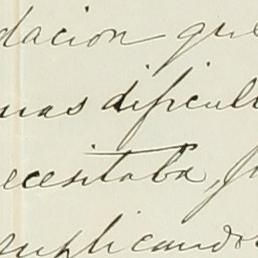 dacion que
mas dificul
ecesitaba, ju
suplicando